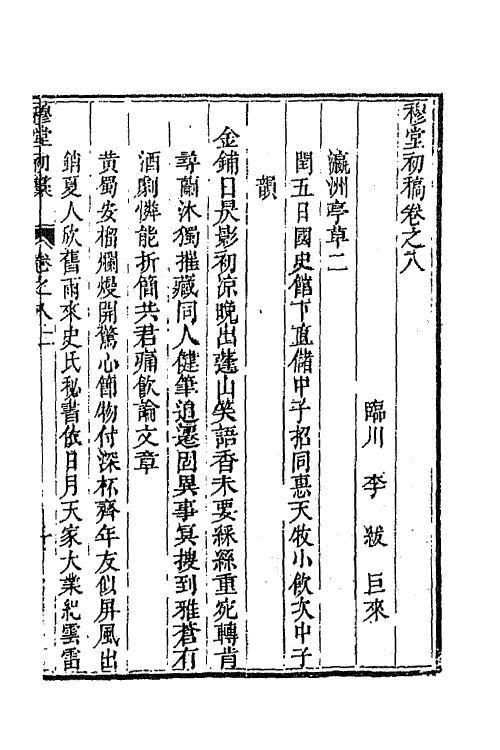 穆堂初稿卷之八
臨川　李　紱　巨來
瀛洲亭草二
閏五日國史館下直儲中子招同惠天牧小飲次中子
韻
金鋪日昃影初涼晚出蓬山笑語香未要綵絲重宛轉肯
尋蘭沐獨摧藏同人健筆追遷固異事冥搜到雅蒼有
酒劇憐能折簡共君痛飲論文章
黃蜀安榴爛熳開驚心節物付深杯齊年友似屏風出
銷夏人欣舊雨來史氏秘書依日月天家大業紀雲雷
穆堂初稾　卷之八　二